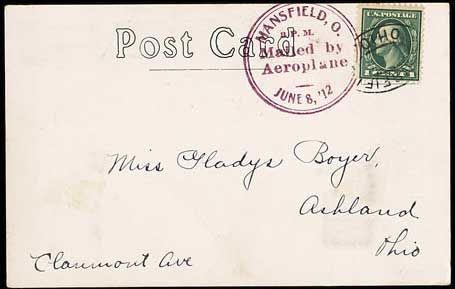 Post Card
MANSFIELD, O.
B.P.M.
Mailed by
Aeroplane
JUNE 8, '12
U.S. POSTAGE
1 CENT 1
OHIO
Miss Gladys Boyer,
Ashland
Ohio
Claremont Ave